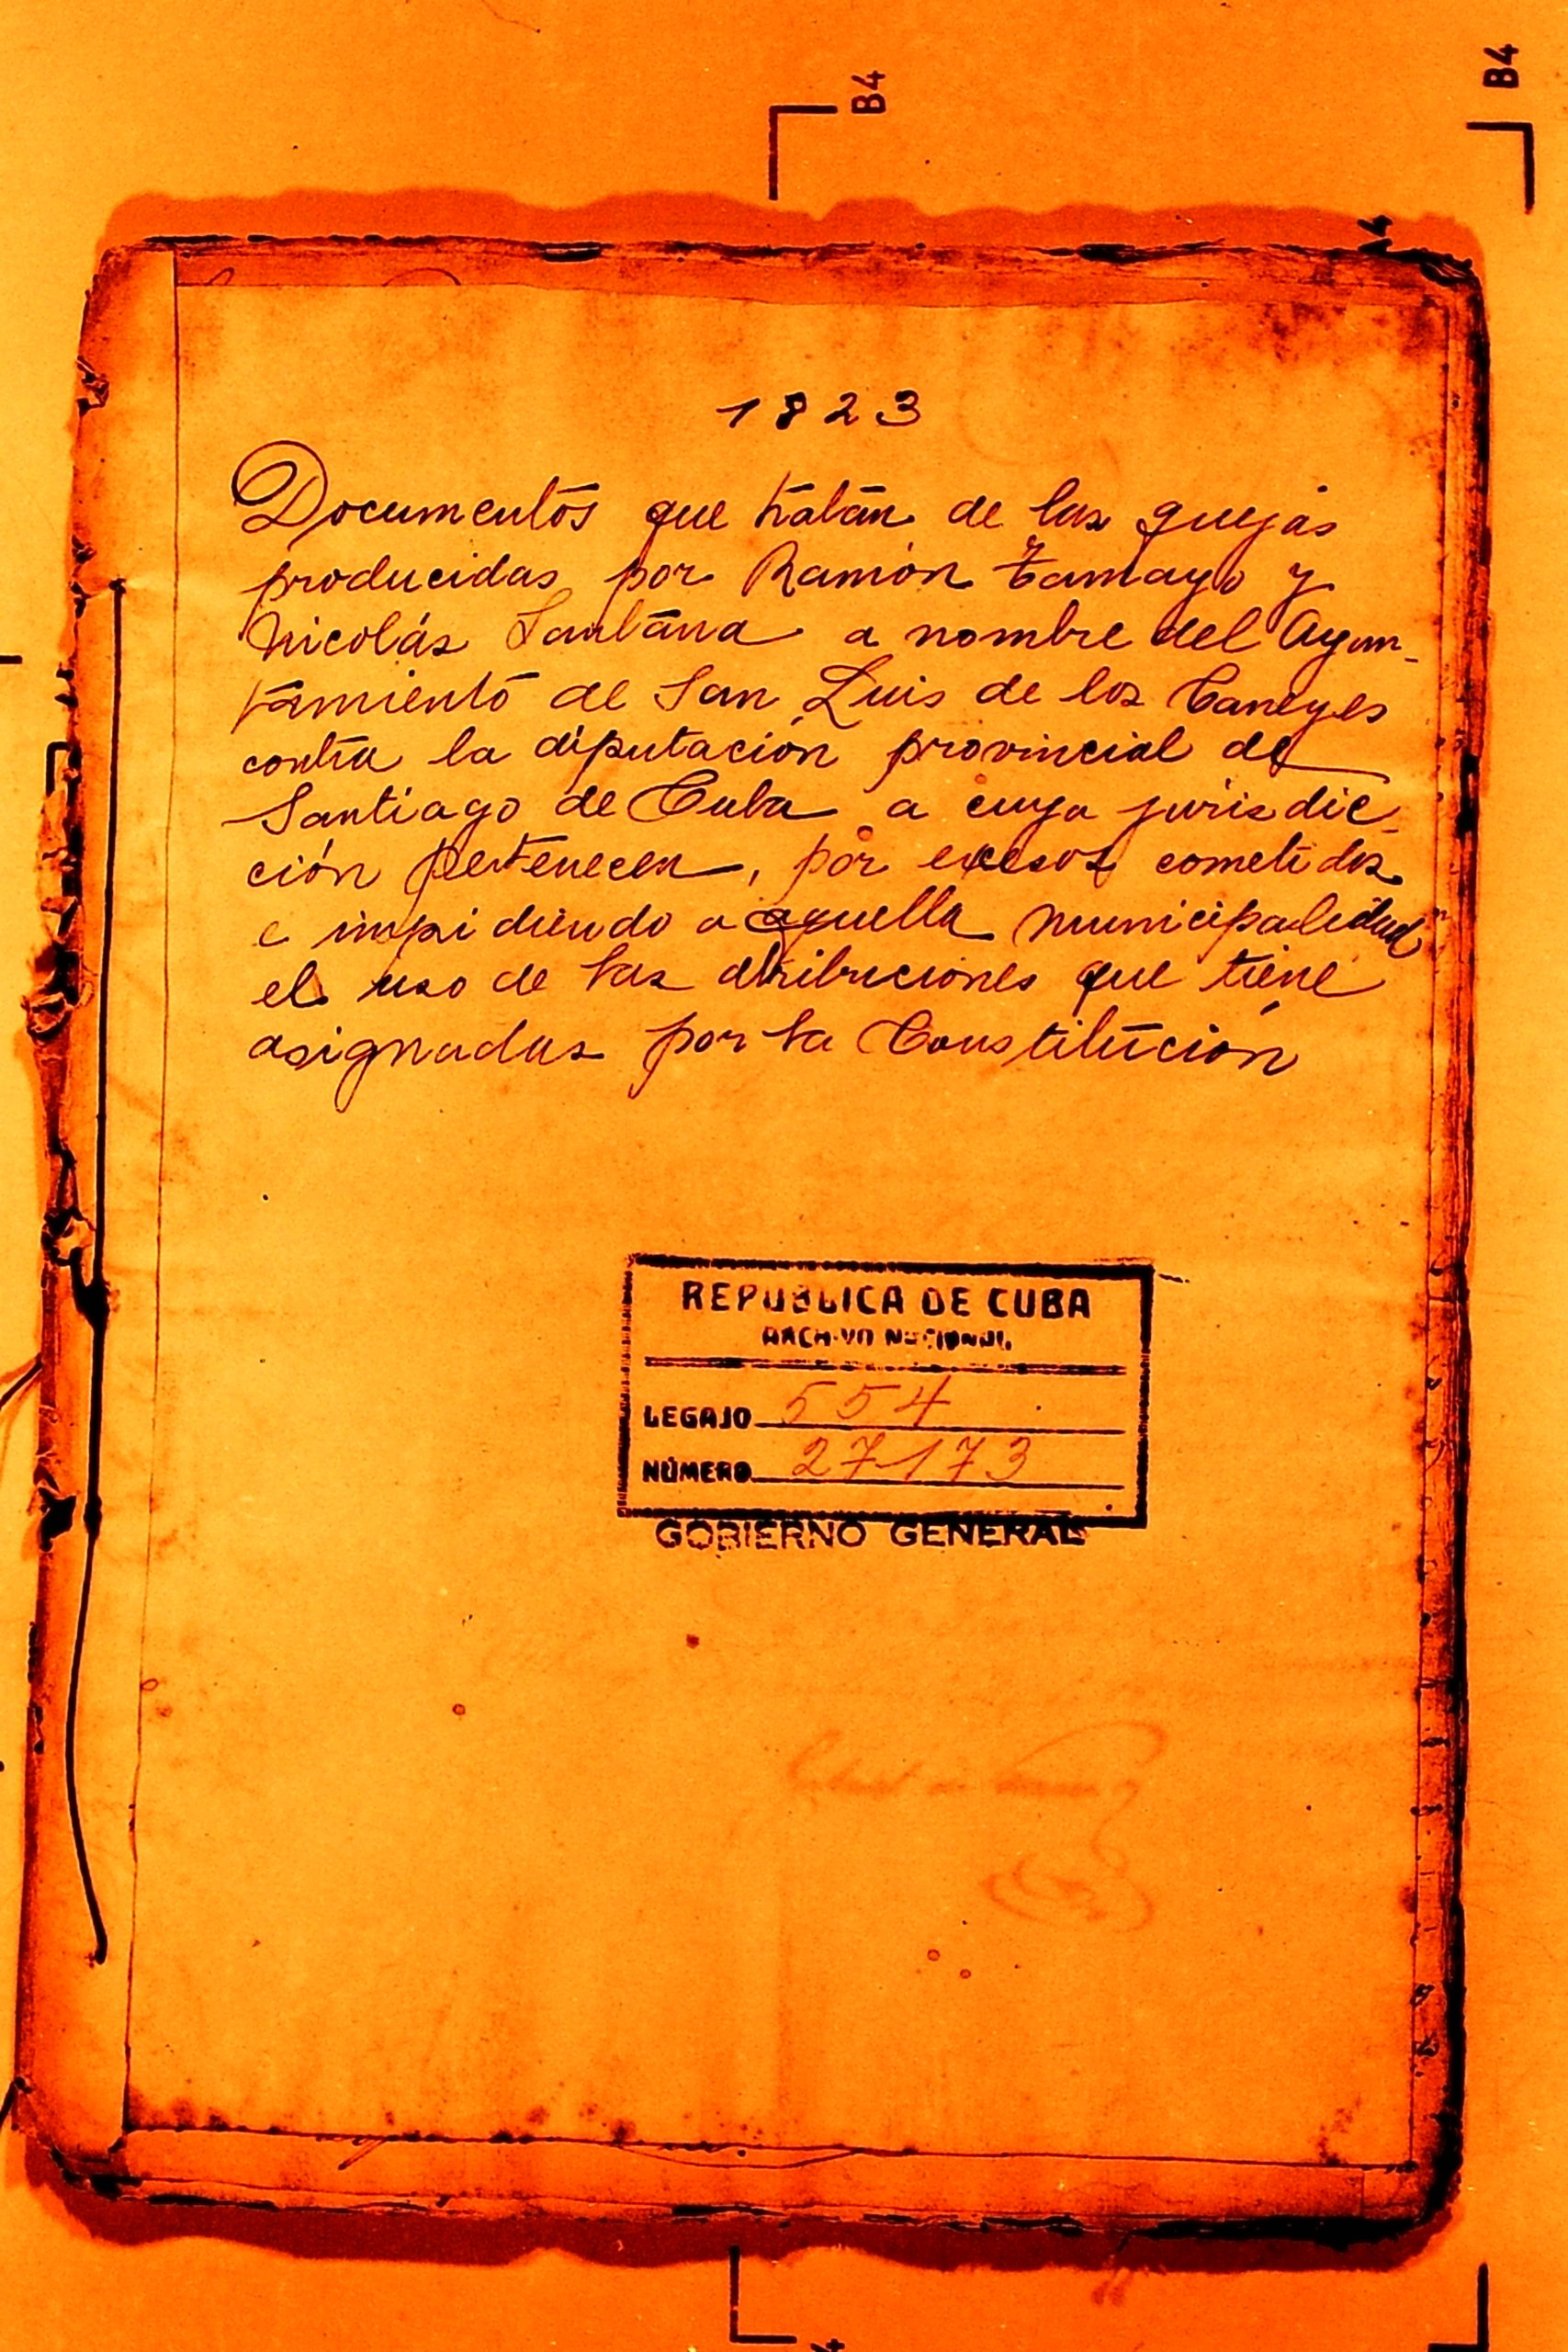 B4
B4
A4
1823
Documentos que tratan de las quejas
producidas por Ramón Tamayo y
Nicolás Santana a nombre del Ayun-
tamiento de San Luis de los Caneyes
contra la diputación provincial de
Santiago de Cuba a cuya jurisdic-
ción pertenecen, por excesos cometidos
e impidiendo a aquella municipalidad
el uso de las atribuciones que tiene
asignadas por la Constitución
REPUBLICA DE CUBA
ARCHIVO NACIONAL
LEGAJO 554
NÚMERO 27173
GOBIERNO GENERAL